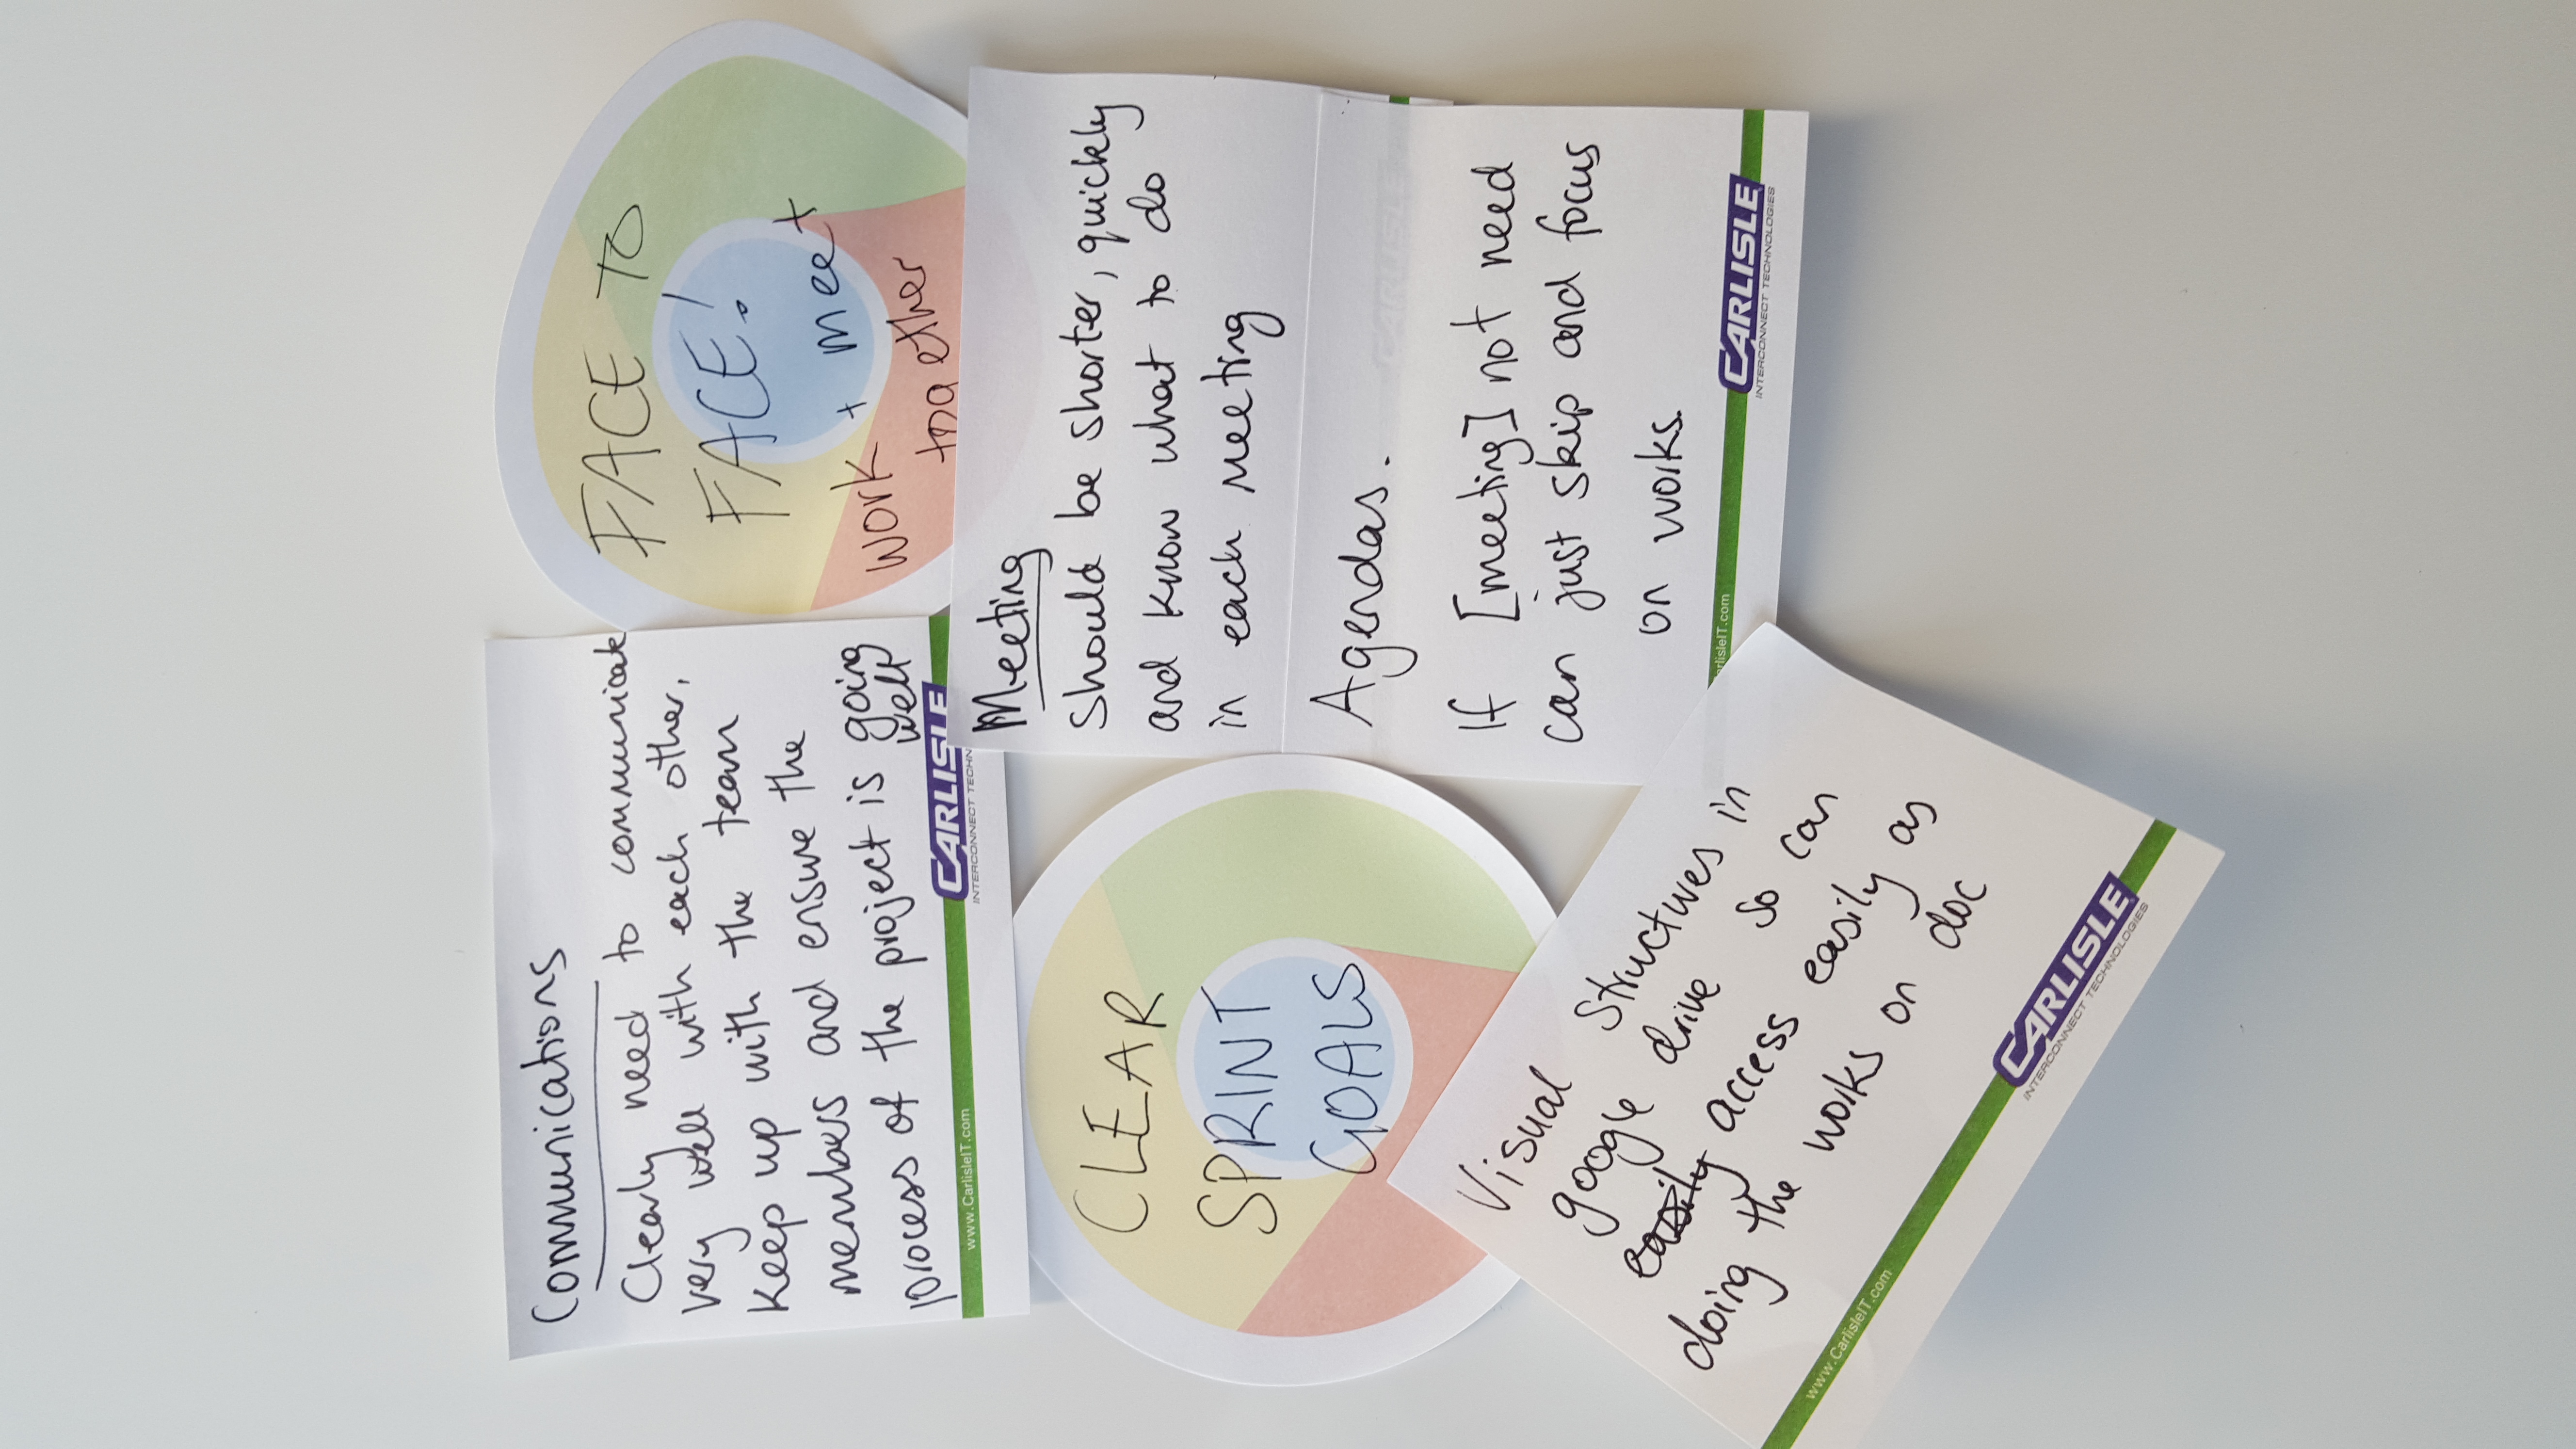 Communications
Clearly need to communicate
very well with each other,
keep up with the team
members and ensure the
process of the project is going
well
www.CarlisleIT.com
CARLISLE
INTERCONNECT TECHN
FACE TO
FACE!
work + meet
together
Meeting
Should be shorter, quickly
and know what to do
in each meeting
Agendas.
If [meeting] not need
can just skip and focus
on works.
arlisleIT.com
CARLISLE
INTERCONNECT TECHNOLOGIES
CLEAR
SPRINT
GOALS
Visual structures in
google drive so can
easily access easily as
doing the works on doc
www.CarlisleIT.com
CARLISLE
INTERCONNECT TECHNOLOGIES